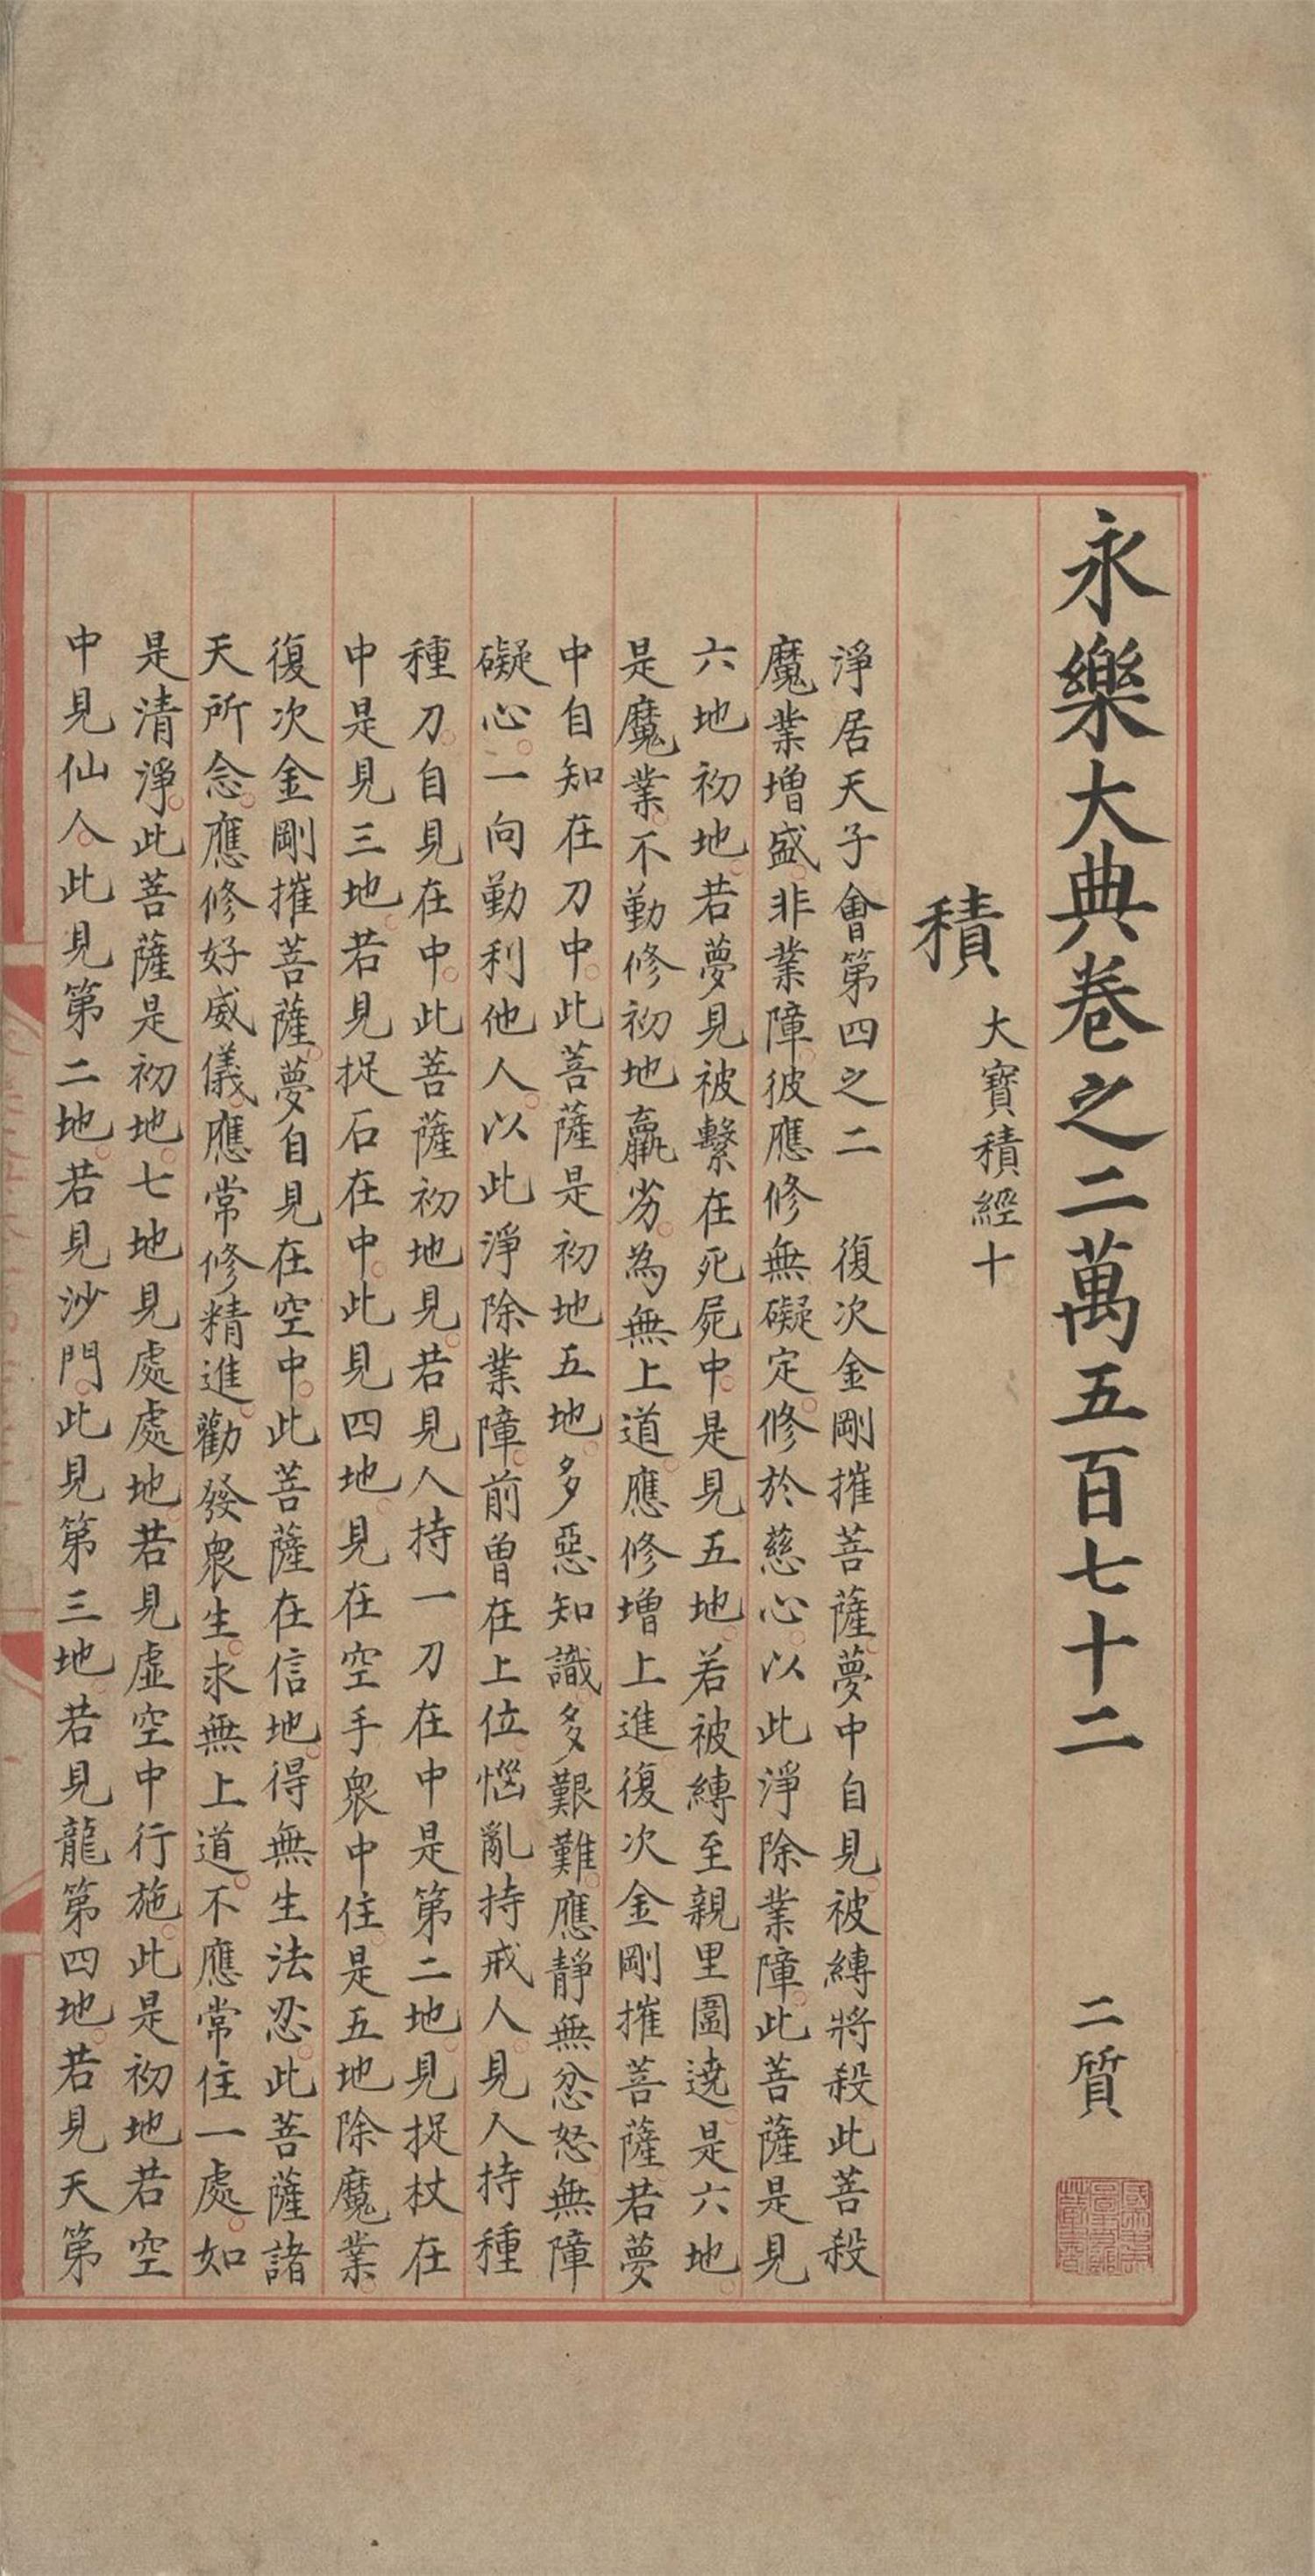 永樂大典卷之二萬五百七十二 二質
積 大寶積經十
淨居天子會第四之二 復次金剛摧菩薩夢中自見被縛將殺此菩殺
魔業增盛非業障彼應修無礙定修於慈心以此淨除業障此菩薩是見
六地初地若夢見被繫在死屍中是見五地若被縛至親里圍遶是六地
是魔業不勤修初地羸劣為無上道應修增上進復次金剛摧菩薩若夢
中自知在刀中此菩薩是初地五地多惡知識多艱難應靜無忿怒無障
礙心一向勤利他人以此淨除業障前曾在上位惱亂持戒人見人持種
種刀自見在中此菩薩初地見若見人持一刀在中是第二地見捉杖在
中是見三地若見捉石在中此見四地見在空手眾中住是五地除魔業
復次金剛摧菩薩夢自見在空中此菩薩在信地得無生法忍此菩薩諸
天所念應修好威儀應常修精進勸發眾生求無上道不應常住一處如
是清淨此菩薩是初地七地見處處地若見虛空中行施此是初地若空
中見仙人此見第二地若見沙門此見第三地若見龍第四地若見天第